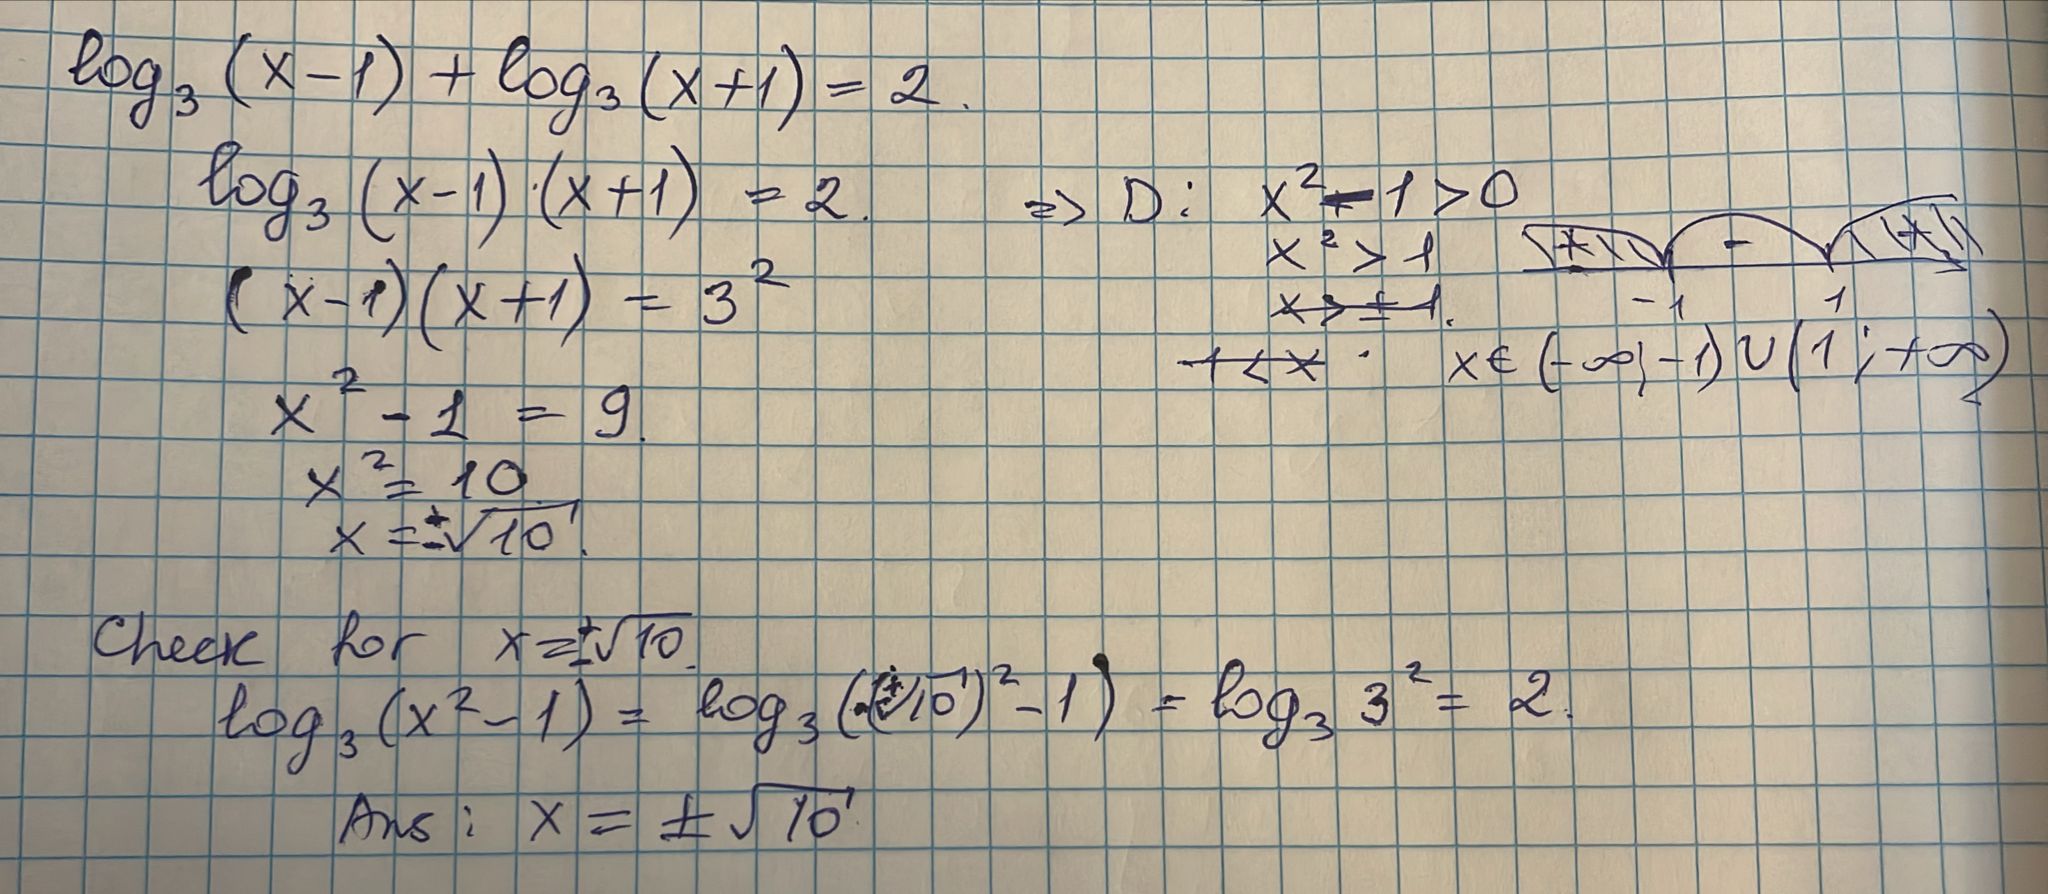 log₃(x-1) + log₃(x+1) = 2.
log₃(x-1)·(x+1) = 2. => D: x² - 1 > 0
(x-1)(x+1) = 3²
x² - 1 = 9.
x² = 10.
x = ±√10.
x² > 1
x > ± 1.
1 < x
+ - +
-1 1
x ∈ (-∞; -1) ∪ (1; +∞)
Check for x = ±√10.
log₃(x² - 1) = log₃((±√10)² - 1) = log₃ 3² = 2.
Ans: x = ±√10